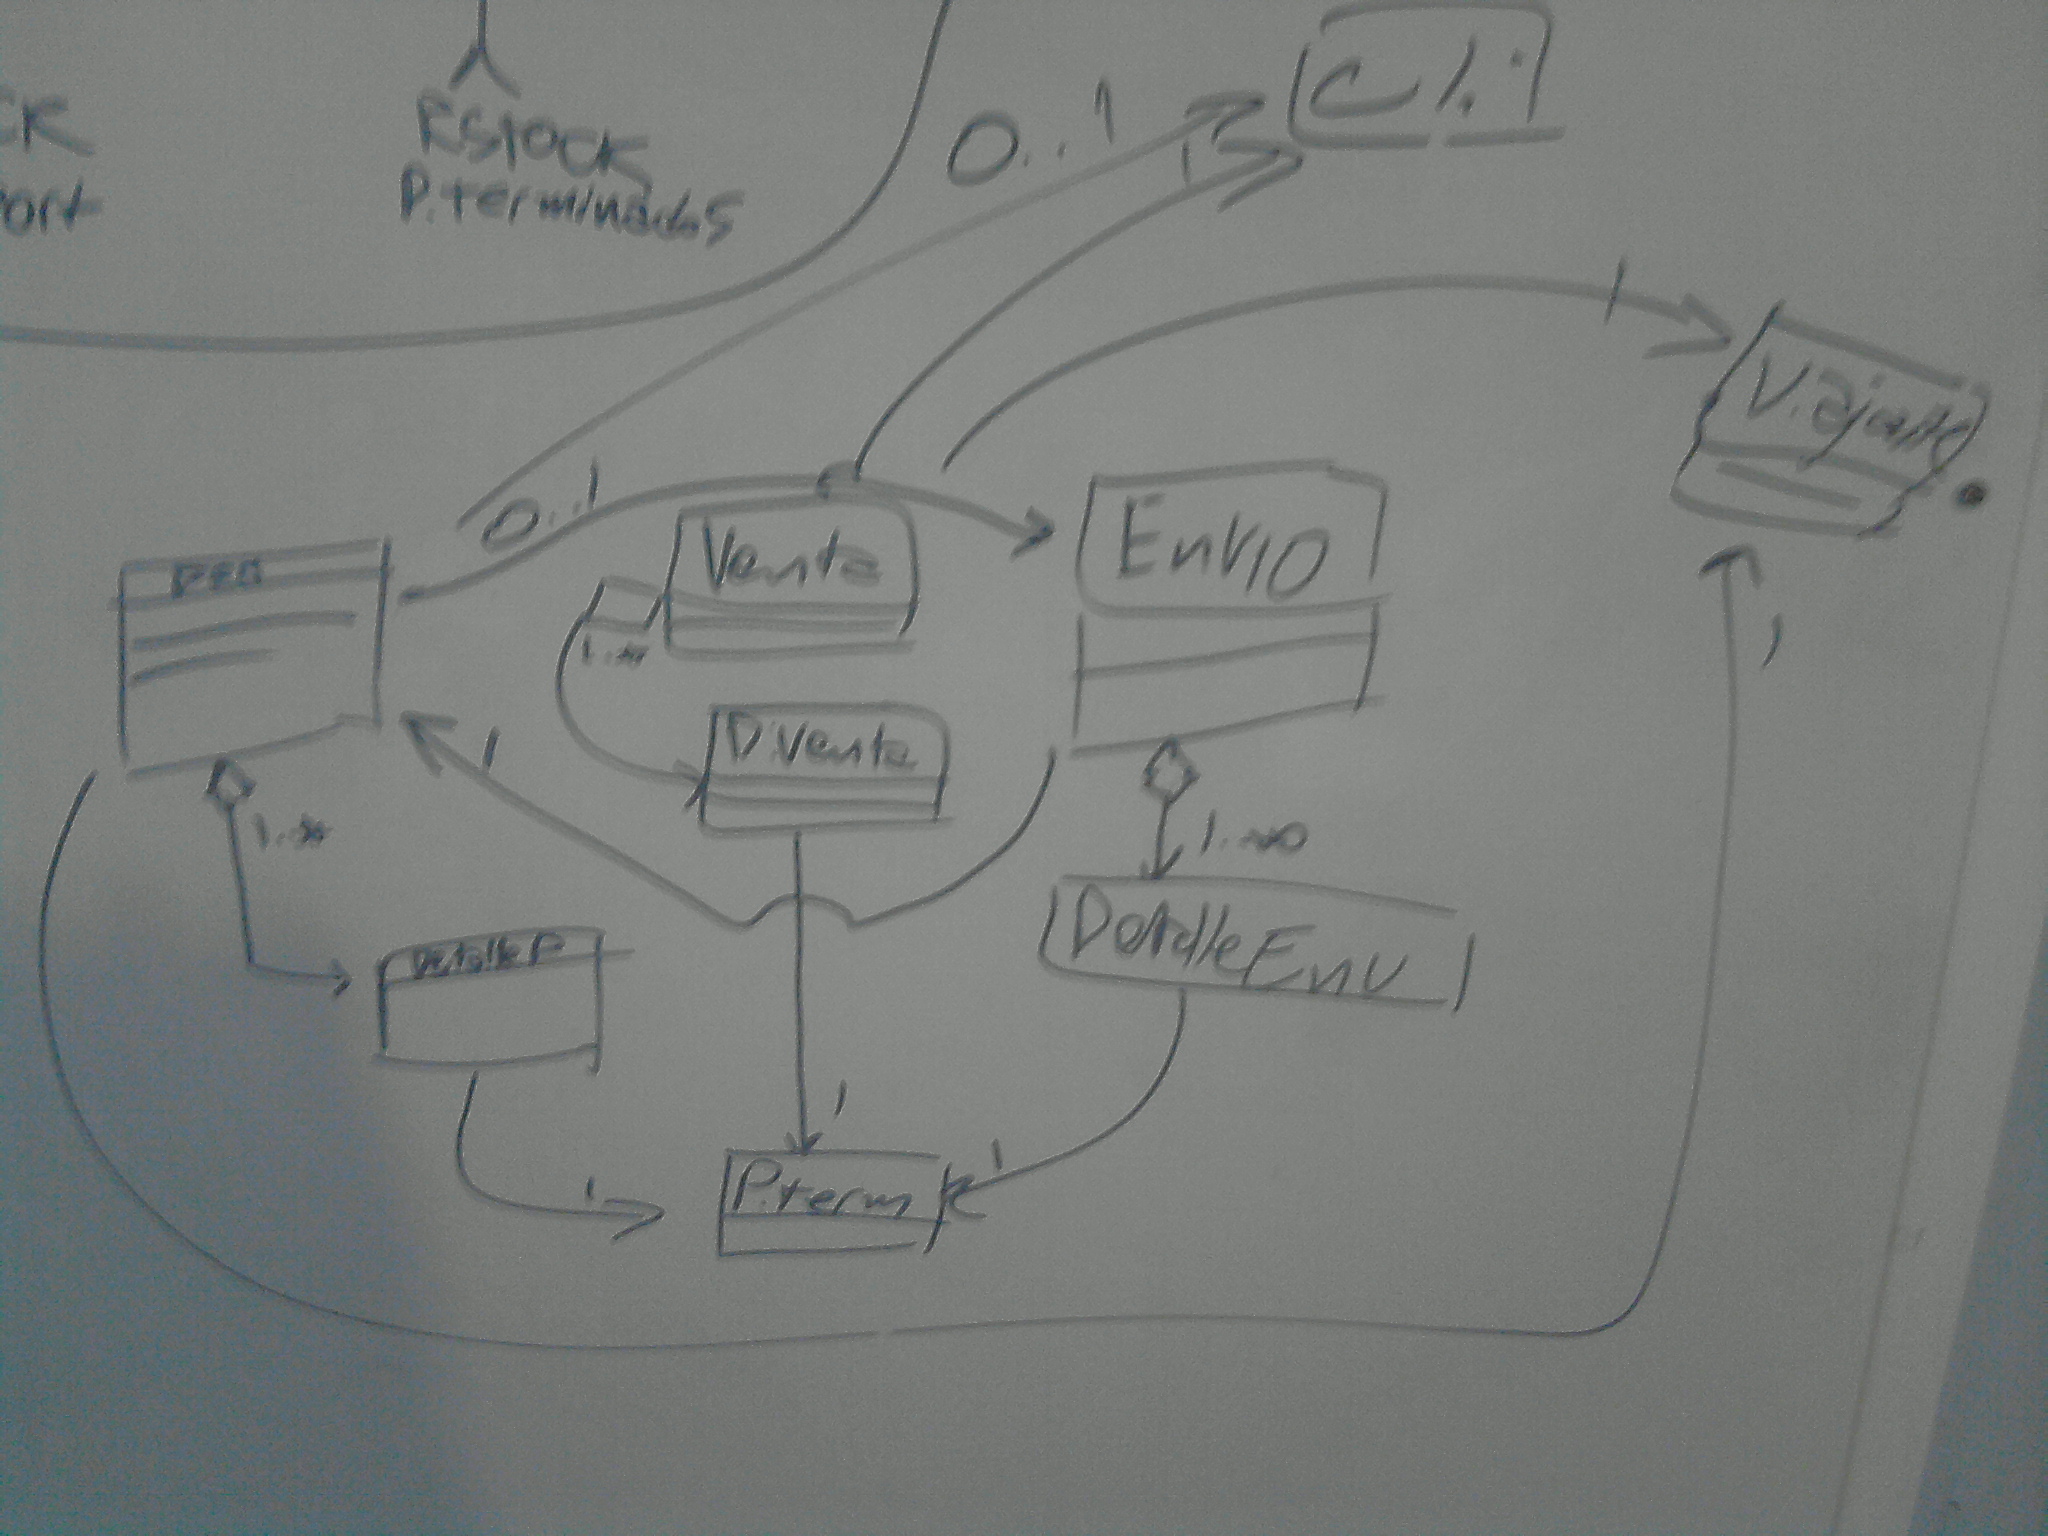 CK
RSTOCK
ort
P.terminados
0..1
1
Cli
1
Viajante
0..1
PED
Venta
Envio
1..*
1
1
D.Venta
1..*
1..∞
DetalleP
DetalleEnv
1
1
1
P.term